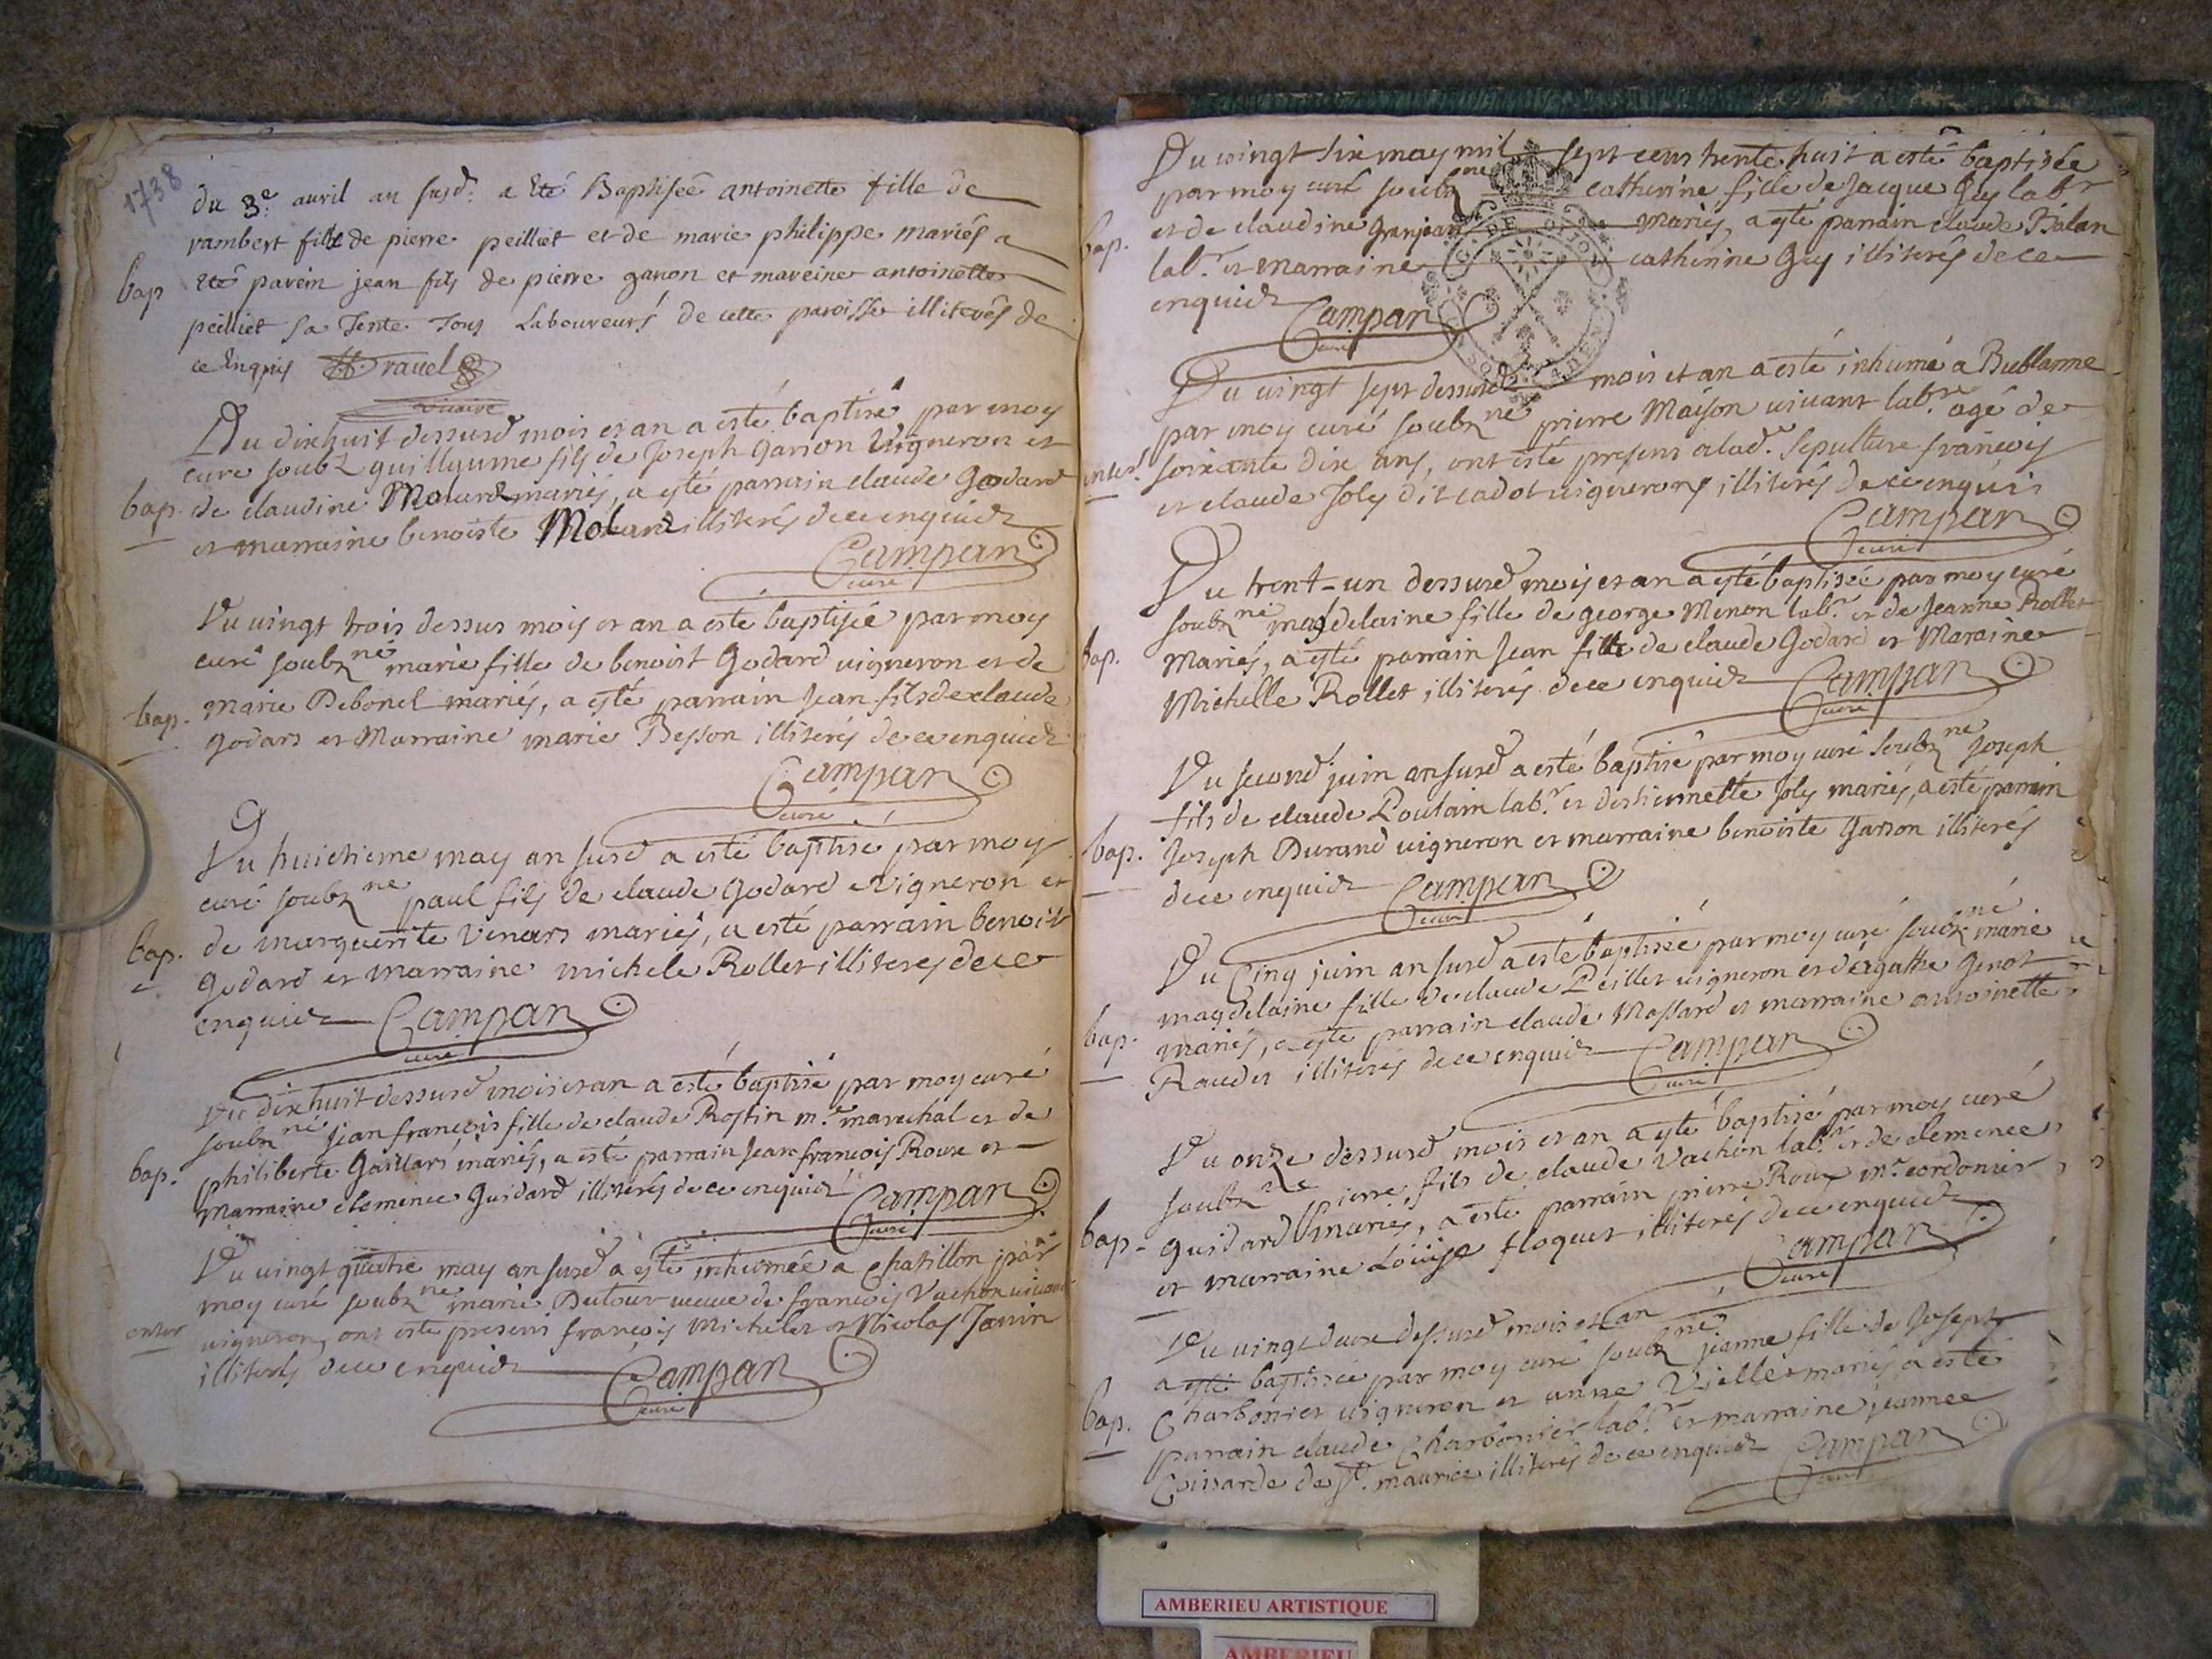 1738
du 3e auril an susd: a Eté Baptiseê antoinette fille de
rambert fils de pierre peilliet et de marie philippe mariés a
bap
Eté parein jean fils de pierre garron et mareine antoinette
peilliet sa Tente Tous Laboureurs de cette paroisse illiterês de
ce Enquis Dravel
vicaire
Du dixhuit dessusd mois et an a esté baptisé par moy
curé soubz guillaume fils de Joseph Garron Vigneron et
bap. de claudine Molard mariés, a esté parrain claude Godard
et marraine benoiste Molard illiterés de ce enquidz
Campan
curé
Du uingt trois dessus mois et an a esté baptisée par moy
curé soubzne marie fille de benoist Godard uigneron et de
bap. marie Debonel mariés, a esté parrain Jean fils de claude
Godard et Marraine marie Besson illiterés de ce enquidz
Campan
curé
Du huictieme may an susd a esté baptisé par moy
curé soubzne paul fils de claude Godard Vigneron et
bap. de marguerite Venard mariés, a esté parrain benoit
Godard et marraine michele Rollet illiteres de ce
enquidz Campan
curé
Du dixhuit dessusd mois et an a esté baptisé par moy curé
soubzne Jean francois fille de claude Rostin me marechal et de
bap. philiberte Gaillard mariés, a esté parrain Jean francois Roux et
Marraine clemence Guidard illiterés de ce enquidz Campan
curé
Du uingt quatre may an susd a esté inhumée a Chatillon par
moy curé soubzne marie Dutour ueuue de francois Vachon uiuant
enter uigneron, ont esté presens francois Michelet et Nicolas Janin
illiterés de ce enquidz Campan
curé
Du uingt six may mil sept cens trente huit a esté baptisée
par moy curé soubzne catherine fille de Jacque Guy labr
bap. et de claudine Granjean mariés, a esté parrain claude Balan
labr. et marraine catherine Guy illiterés de ce
enquidz Campan
curé
Du uingt sept dessusd mois et an a esté inhumé a Bublanne
par moy curé soubzne pierre Maison uiuant labr. agé de
enter. soixante dix ans, ont esté presens a lad. sepulture francois
et claude Joly dit cadot uignerons illiterés de ce enquis
Campan
curé
Du trent-un dessusd mois et an a esté baptisée par moy curé
soubzne magdelaine fille de george Menon labr. et de Jeanne Rollet
bap. Mariés, a esté parrain Jean fils de claude Godard et Maraine
Michelle Rollet illiterés de ce enquidz Campan
curé
Du second juin an susd a esté baptisé par moy curé soubzne Joseph
fils de claude Poulain labr. et destiennette Joly mariés, a esté parrain
bap. Joseph Durand uigneron et marraine benoiste Garron illiterés
de ce enquidz Campan
curé
Du Cinq juin an susd a esté baptisée par moy curé soubzne marie
magdelaine fille de claude Peillet uigneron et d'agathe Genot
bap. mariés, a esté parrain claude Massard et marraine antoinette
Raudet illiterés de ce enquidz Campan
curé
Du onze dessusd mois et an a esté baptisé par moy curé
soubzne pierre fils de claude Vachon labr. et de clemence
bap. Guidard mariés, a esté parrain pierre Roux me cordonier
et marraine Louise floquet illiterés de ce enquidz
Campan
curé
Du uingt deux dessusd mois et an
a esté baptisée par moy curé soubzne jeanne fille de Joseph
bap. Charbonier uigneron et anne Viellet mariés, a esté
parrain claude Charbonier labr. et marraine jeannee
Coissarde de St. maurice illiterés de ce enquidz Campan
curé
AMBERIEU ARTISTIQUE
AMBERIEU